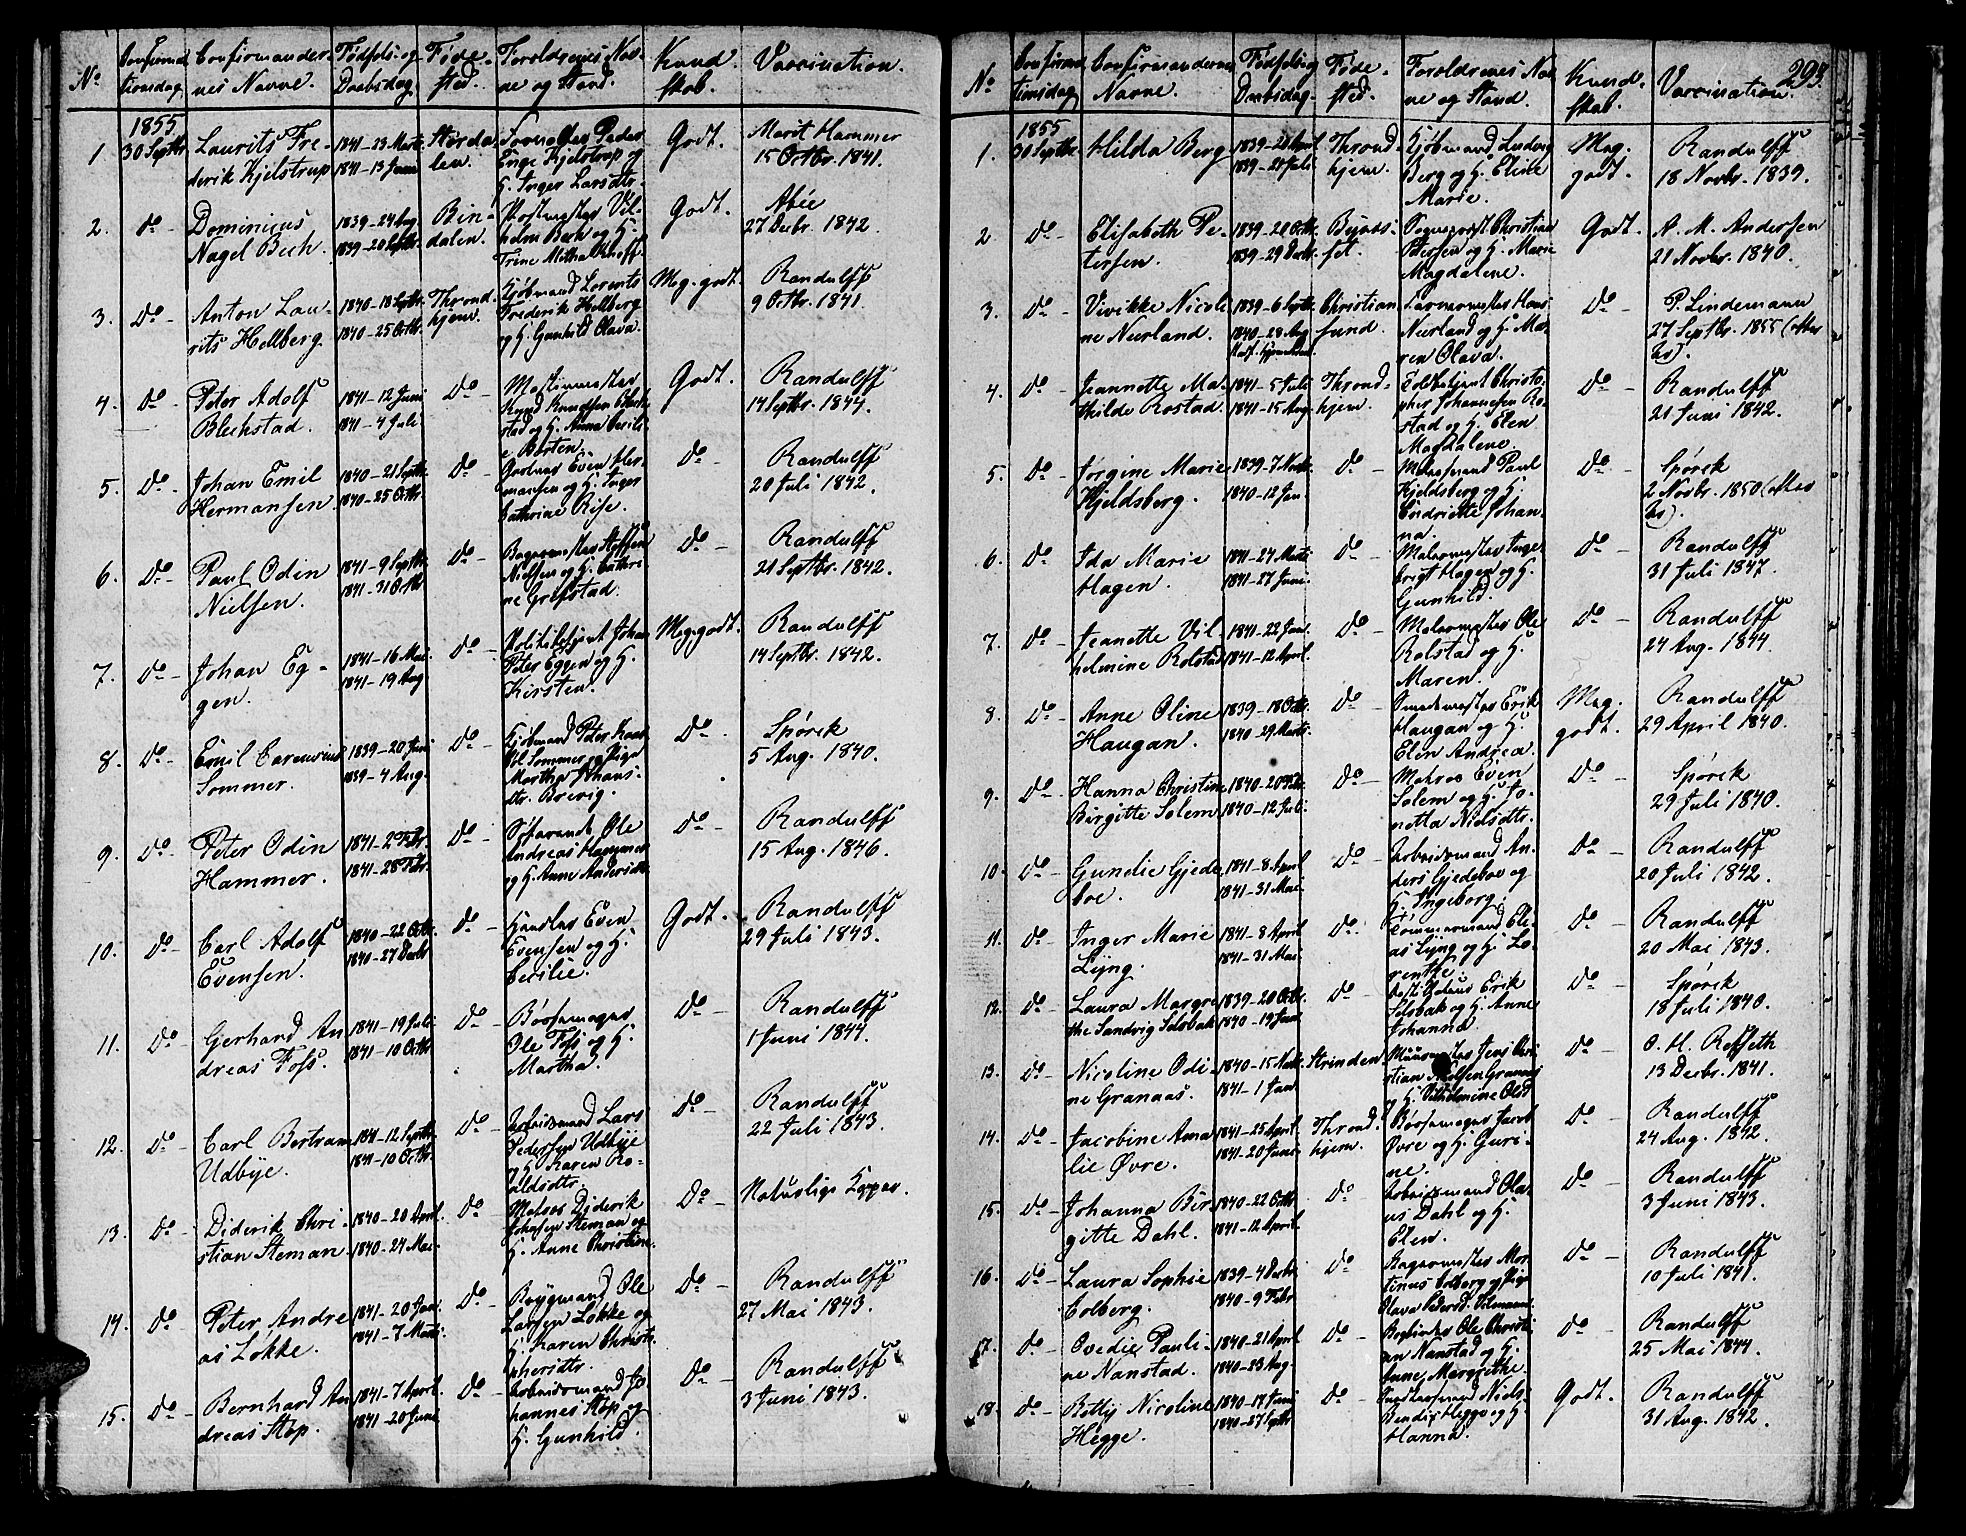 No
Confirma-
tionsdag
Confirmander-
nes Navne.
Fødsels- og
Daabsdag.
Føde-
sted.
Forældrenes Nav-
ne og Stand.
Kund-
skab.
Vaccination.
1855
1. 30 Septbr.
Laurits Fre-
derik Kjelstrup
1841-23 Marts
1841-13 Juni
Størda-
len.
Enge Kjelstrup og
H. Inger Larsdtr.
Godt.
Marit Hammer
15 Octbr. 1841.
2. do -
Dominicus
Nagel Bech.
1839-24 Aug
1839-20 Septbr.
Bin-
dalen.
Postmester Vil-
helm Bech og H.
Godt.
Abée
27 Decbr. 1842.
3. Do -
Anton Lau-
rits Hellberg
1840-18 Septbr.
1840-25 Octbr.
Thrond-
hjem.
Kjøbmand Lorents
Frederik Hellberg
og H. Gunhild Olava.
Meg. godt.
Randulff
9 Octbr. 1841.
4. Do -
Peter Adolf
Blechstad.
1841-12 Juni
1841-4 Juli
Do -
Knud Knudsen Blech-
stad og H. Anna Cecili-
e Borten.
Godt.
Randulff
14 Septbr. 1844.
5. Do -
Johan Emil
Hermansen
1840-21 Septbr.
1840-25 Octbr.
Do -
Even Her-
mansen og H. Inger
Cathrine Rise.
Do -
Randulff
20 Juli 1842.
6. Do -
Paul Odin
Nielsen.
1841-9 Septbr.
1841-31 Octbr
Do -
Bagermester Steffen
Nielsen og H. Cathri-
ne Grefstad.
Do -
Randulff
21 Septbr. 1842.
7. Do -
Johan Eg-
gen.
1841-16 Mai
1841-19 Aug
Do -
Politibetjent Johan
Peter Eggen og H.
Kirsten.
Meg. godt.
Randulff
14 Septbr. 1842.
8. Do -
Emil
Sommer.
1839-20 Juni
1839-4 Aug.
Do -
Kjøbmand Peter
Sommer og Pige
Martha Johans-
dtr. Brevig.
Do -
Spørck
5 Aug. 1840.
9. Do -
Peter Odin
Hammer.
1841-2 Febr
1841-28 Febr.
Do -
Søfarende Ole
Andreas Hammer
og H. Anne Andersdtr.
Do -
Randulff
15 Aug. 1846.
10. Do -
Carl Adolf
Evensen.
1840-22 Octbr.
1840-27 Decbr
do -
Even
Evensen og H.
Cecilie.
Godt.
Randulff
29 Juli 1843.
11. Do -
Gerhard An-
dreas Foss.
1841-19 Juli
1841-10 Octbr
Do -
Børsemager
Ole Foss og H.
Martha.
Do -
Randulff
1 Juni 1844.
12. Do -
Carl Bertram
Udbye.
1841-12 Septbr.
1841-10 Octbr.
Do -
Arbeidsmand Lars
Pedersen Udbye
og H. Karen Ro-
aldsdtr.
Do -
Randulff
22 Juli 1843.
13. Do -
Diderik Chri-
stian Steman
1840-20 April
1840-24 Mai
Do -
Matros Diderik
Johansen Steman og
H. Anne Christine.
Do -
Naturlige Kopper.
14. Do -
Peter Andre-
as Løkke.
1841-20 Jan.
1841-7 Marts
Do -
Brygmand Ole
Larsen Løkke og
H. Karen Christo-
phersdtr.
Do -
Randulff
27 Mai 1843.
15. Do -
Bernhard An-
dreas Stop.
1841-7 April
1841-20 Juni
Do -
Arbeidsmand Jo-
hannes Stop og
H. Gunhild.
Do -
Randulff
3 Juni 1843.
293.
No
Confirma-
tionsdag
Confirmandernes
Navne.
Fødsels- og
Daabsdag.
Føde-
sted.
Forældrenes Nav-
ne og Stand.
Kund-
skab.
Vaccination.
1855
1. 30 Septbr.
Hilda Berg
1839-20 April
1839-21 Juli
Thrond-
hjem.
Kjøbmand Ludvig
Berg og H. Eline
Marie.
Meg.
godt.
Randulff
18 Novbr. 1839.
2. Do -
Elisabeth Pe-
tersen.
1839-20 Octbr.
1839-29 Decbr.
Bynæs-
set.
Sogneprest Christian
Petersen og H. Marie
Magdalene.
Godt.
A. M. Andersen
21 Novbr. 1840.
3. Do -
Vivikke Nicoli-
ne Neerland.
1839-6 Septbr.
1840-28 Aug
Christian-
sund.
Hans
Neerland og H. Ma-
ren Olava.
Do -
P. Lindemann
27 Septbr. 1855 (Attes
tes).
4. Do -
Jeannette Ma-
thilde Rostad.
1841-5 Juli
1841-15 Aug.
Thrond-
hjem.
Toldbetjent Christo-
pher Johannesen Ro-
stad og H. Elen
Magdalene.
Do -
Randulff
21 Juni 1842.
5. Do -
Jørgine Marie
Kjeldsberg.
1839-7 Novbr.
1840-12 Jan.
Do -
Paul
Kjeldsberg og H.
Endriette Johan-
na.
Do -
Spørck
2 Novbr. 1850 (Attes
tes).
6. Do -
Ida Marie
Hagen.
1841-24 Marts
1841-27 Juni.
Do -
Malermester Inge-
brigt Hagen og H.
Gunhild.
Do -
Randulff
31 Juli 1847.
7. Do -
Jeanette Vil-
helmine Rolstad
1841-22 Jan.
1841-12 April
Do -
Malermester Ole
Rolstad og H.
Maren.
Do -
Randulff
24 Aug. 1844.
8. Do -
Anne Oline
Haugan.
1839-18 Octbr.
1840-29 Marts
Do -
Smedemester Erik
Haugan og H.
Elen Andrea.
Meg.
godt.
Randulff
29 April 1840.
9. Do -
Hanna Christine
Birgitte Solem
1840-20 Febr.
1840-12 Juli.
Do -
Matros Even
Solem og H. Jo-
netta Nielsdtr.
Do -
Spørck
29 Juli 1840.
10. Do -
Gundie Gjede-
boe.
1841-8 April
1841-31 Mai
Do -
Arbeidsmand An-
ders Gjedeboe og
H. Ingeborg.
Do -
Randulff
20 Juli 1842.
11. Do -
Inger Marie
Lyng.
1841-8 April
1841-31 Mai
Do -
Tømmermand Ele-
as Lyng og H. Lo-
renthe.
Do -
Randulff
20 Mai 1843.
12. Do -
Laura Margre-
the Sandvig Selsbak
1839-20 Octbr.
1840-19 Jan
Do -
Erik
Selsbak og H. Anne
Johanna
Do -
Spørck
18 Juli 1840.
13. Do -
Nicoline Odi-
ne Granaas.
1840-15 Novbr.
1841-1 Jan
Strinden
Muurmester Jens Chri-
stian Nielsen Granaas
og H. Vilhelmine Olsd.
Do -
O. H. Refseth
13 Decbr. 1841.
14. Do -
Jacobine Ama-
lie Øvre.
1841-25 April.
1841-20 Juni.
Thrond-
hjem.
Børsemager Jacob
Øvre og H. Guri-
ne.
Do -
Randulff
24 Aug. 1842.
15. Do -
Johanna Bir-
gitte Dahl.
1840-22 Octbr
1841-12 April.
Do -
Arbeidsmand Ola-
us Dahl og H.
Elen.
Do -
Randulff
3 Juni 1843.
16. Do -
Laura Sophie
Colberg.
1839-4 Decbr.
1840-9 Febr
Do -
Bagermester Mor-
tinus Colberg og Pige
Olava Pedersd.
Do -
Randulff
10 Juli 1841.
17. Do -
Ovedie Pauli-
ne Nanstad.
1840-21 April
1840-23 Aug.
Do -
Ole Christi-
an Nanstad og H.
Anne Margrethe.
Do -
Randulff
25 Mai 1844.
18. Do -
Betty Nicoline
Hegge.
1840-14 Juni
1840-27 Septbr
Do -
Niels
Bendix Hegge og H.
Hanna.
Godt.
Randulff
31 Aug. 1842.